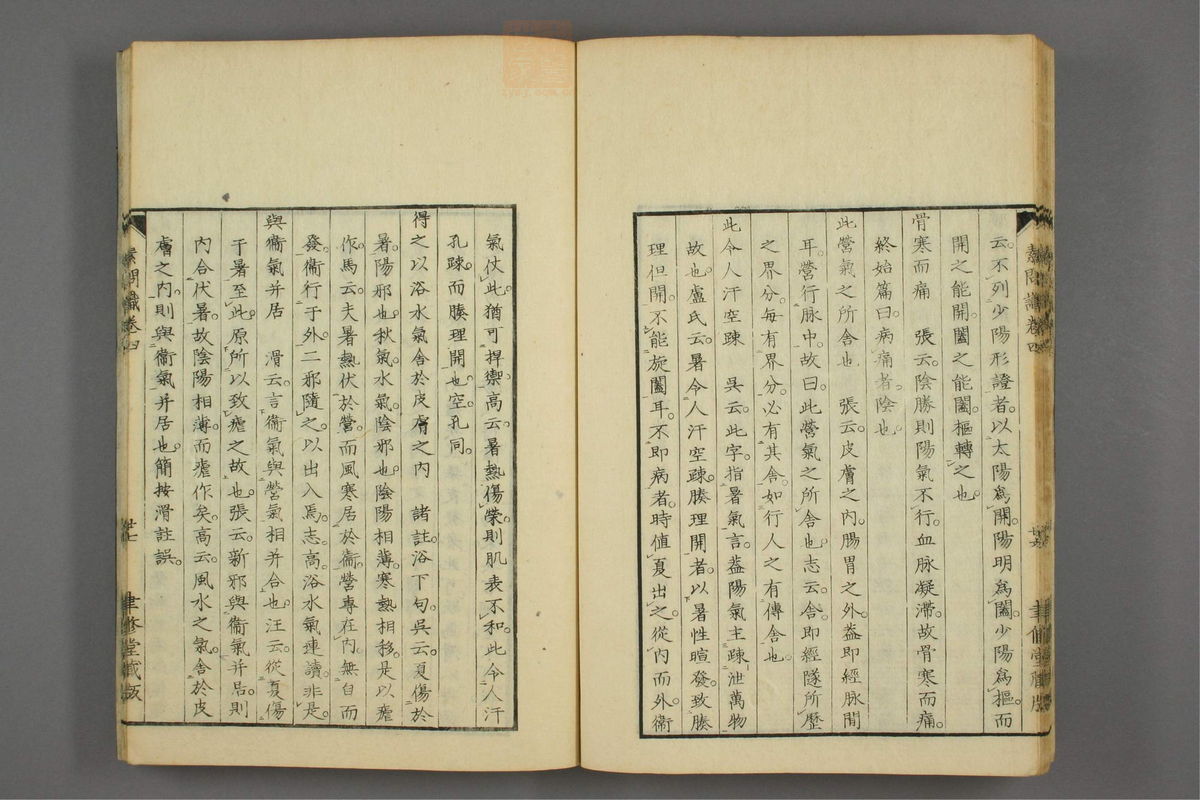 云。不列少陽形證者。以太陽為開。陽明為闔。少陽為樞。而
開之能開。闔之能闔。樞轉之也。
骨寒而痛　張云。陰勝則陽氣不行。血脉凝滯。故骨寒而痛。
終始篇曰。病痛者。陰也。
此營氣之所舍也　張云。皮膚之內。腸胃之外。葢即經脉間
耳。營行脉中。故曰。此營氣之所舍也。志云。舍即經隧所歷
之界分。每有界分。必有其舍。如行人之有傳舍也。
此令人汗空疎　吳云。此字。指暑氣言。葢陽氣主疎泄萬物
故也。盧氏云。暑令人汗空疎。腠理開者。以暑性暄發。致腠
理但開。不能旋闔耳。不即病者。時值夏出之。從內而外。衞
氣仗此。猶可捍禦。高云。暑熱傷榮。則肌表不和。此令人汗
孔疎。而腠理開也。空。孔同。
得之以浴水氣舍於皮膚之內　諸註。浴下句。吳云。夏傷於
暑。陽邪也。秋氣水氣。陰邪也。陰陽相薄。寒熱相移。是以瘧
作。馬云。夫暑熱伏於營。而風寒居於衞。營專在內。無自而
發。衞行于外。二邪隨之以出入焉。志。高。浴水氣連讀。非是。
與衞氣并居　滑云。言衞氣與營氣相并合也。汪云。從夏傷
于暑至此。原所以致瘧之故也。張云。新邪與衞氣并居。則
內合伏暑。故陰陽相薄。而瘧作矣。高云。風水之氣。舍於皮
膚之內。則與衞氣并居也。簡按滑註誤。
素問識卷四
廿七
聿修堂藏版